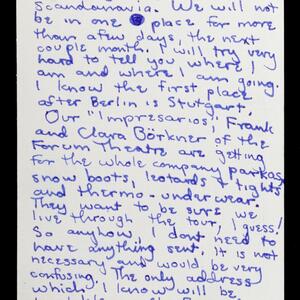 Scandanavia. We will not
be in one place for more
than a few days, the next
couple month. I will try very
hard to tell you where I
am and where I am going.
I know the first place
after Berlin is Stutgart.
Our "Impresarios", Frank
and Clara Börkner of the
Forum Theatre are getting
for the whole company parkas,
snow boots, leotards & tights
and thermo-underwear.
They want to be sure we
live through the tour, I guess!
So anyhow, I dont need to
have anything sent. It is not
necessary and would be very
confusing. The only address
which I know will be